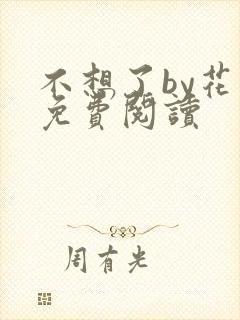 不想了by花
免費閱讀
周有光